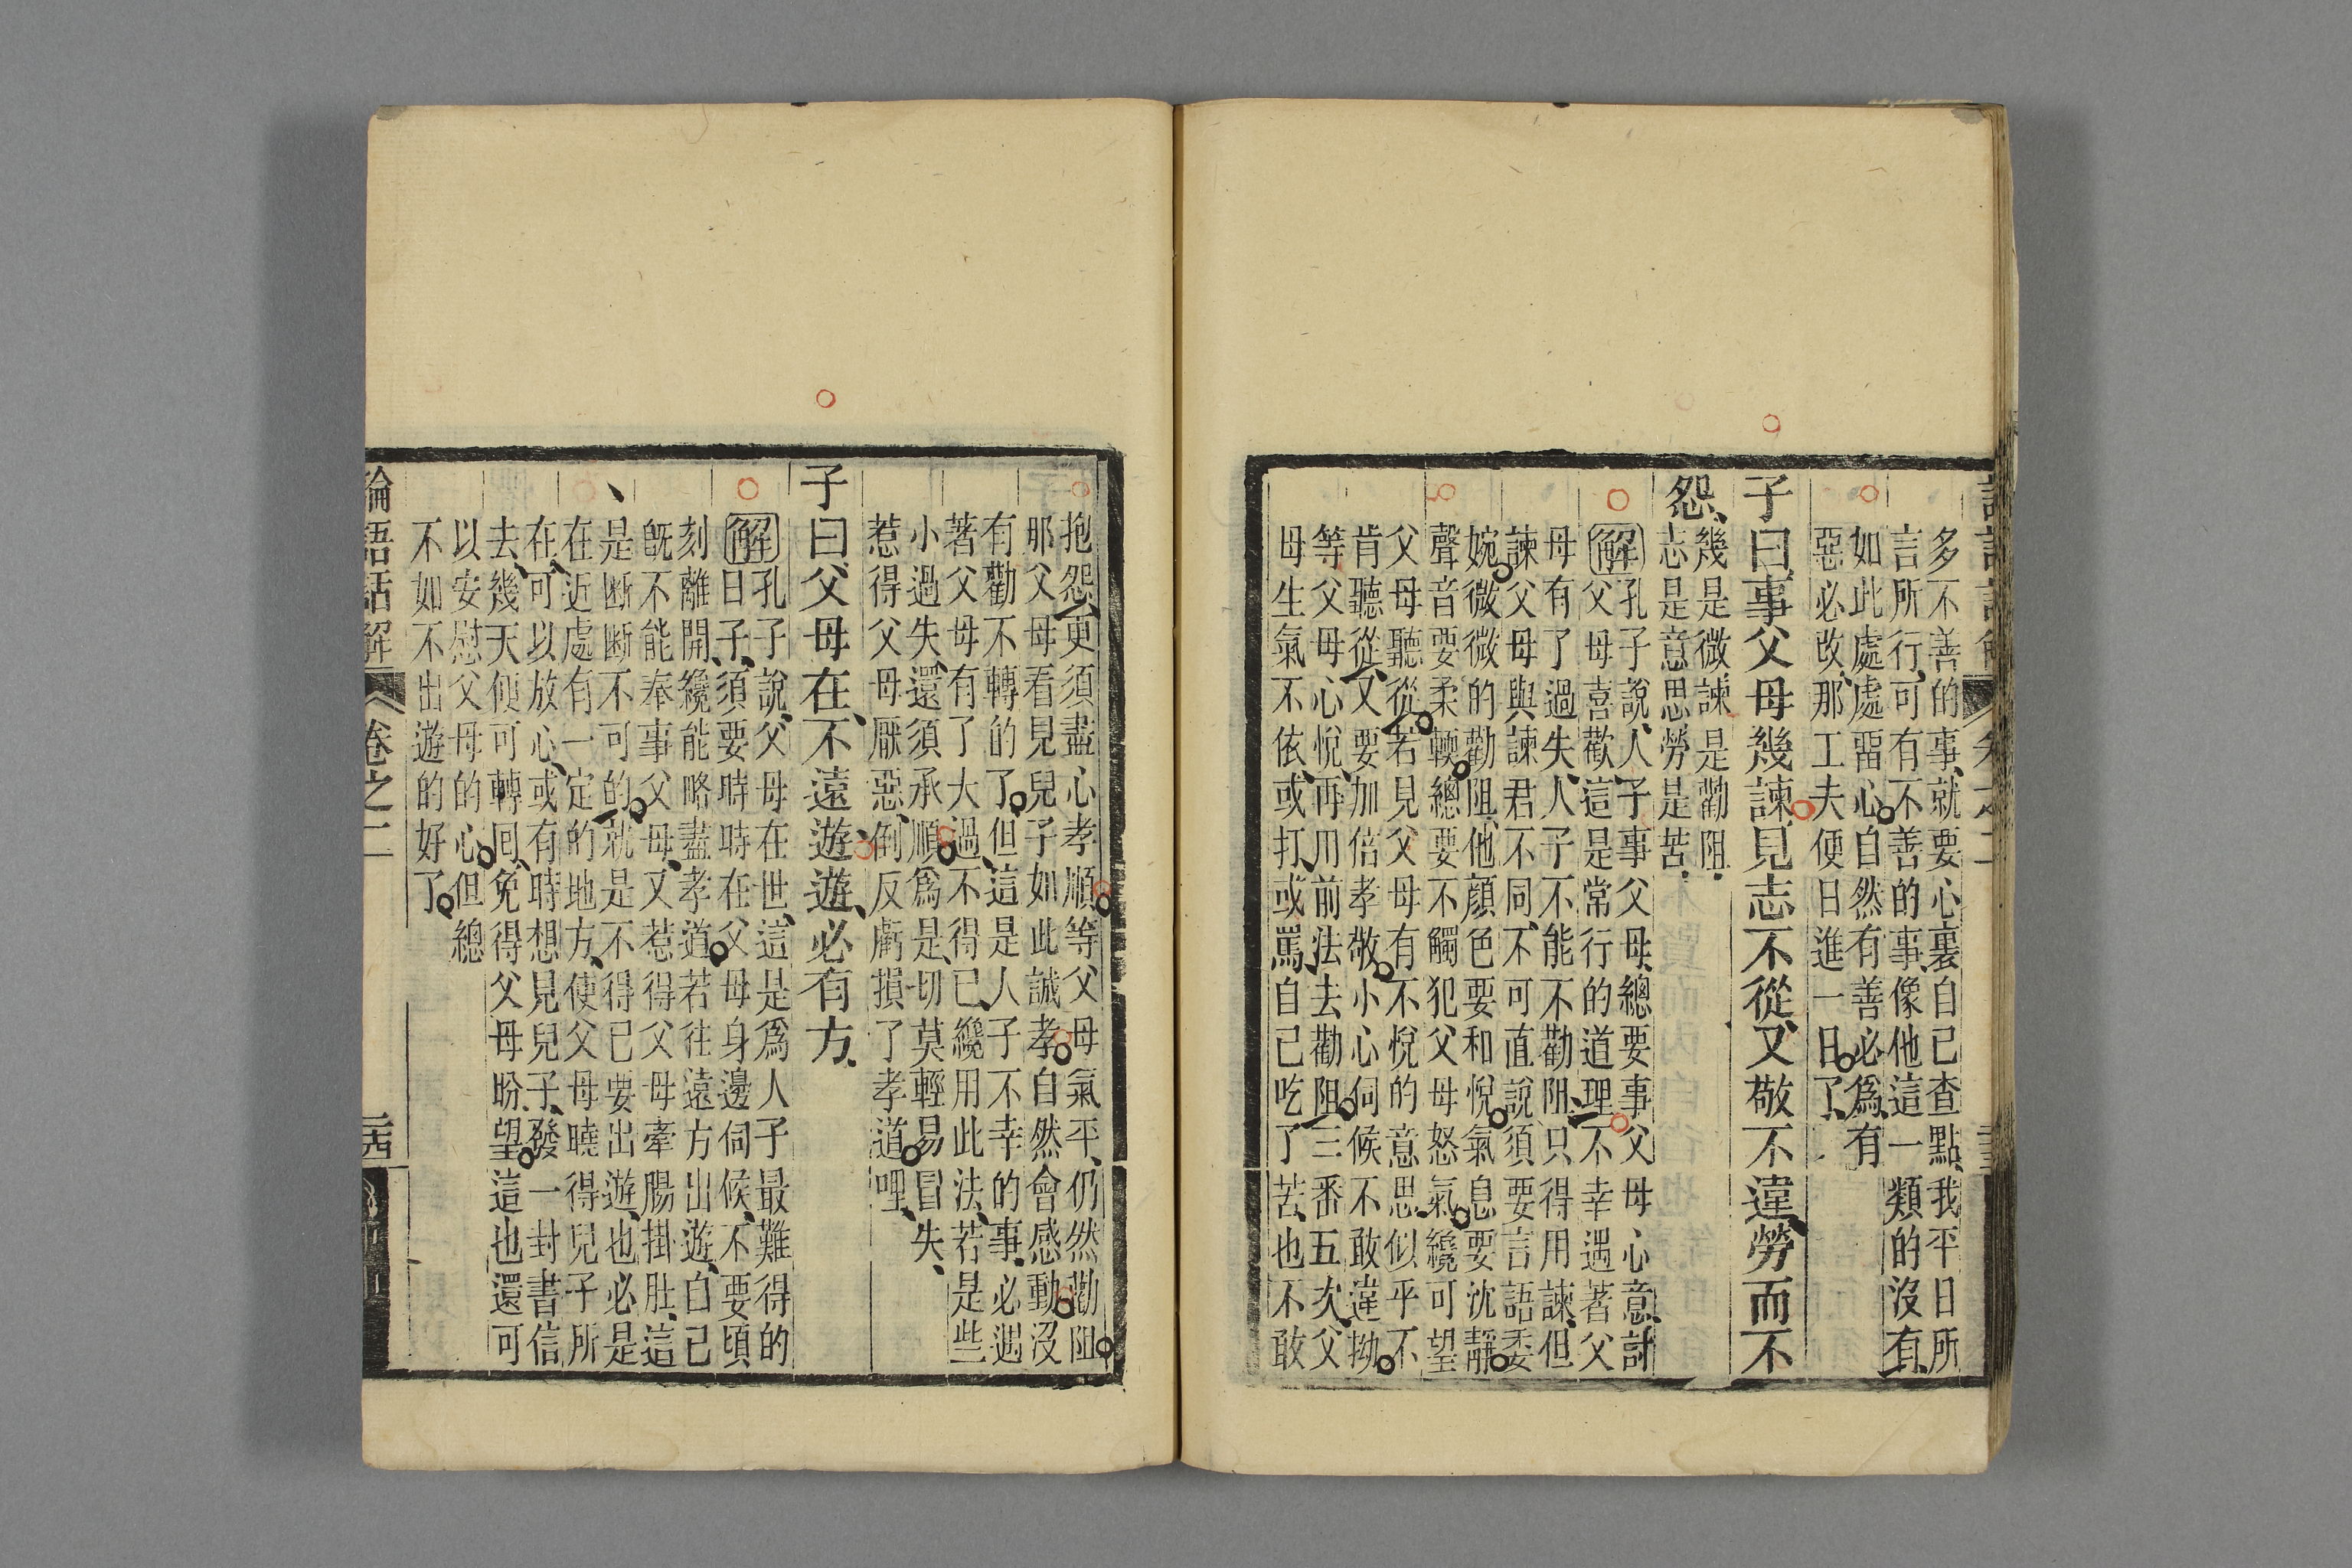 多不善的事就要心裏自己查點我平日所
言所行可有不善的事像他這一類的沒有
如此處處畱心自然有善必爲有
惡必改那工夫便日進一日了
子曰事父母幾諫見志不從又敬不違勞而不
怨幾是微諫是勸阻
志是意思勞是苦
解孔子說人子事父母總要事父母心意討
父母喜歡這是常行的道理不幸遇著父
母有了過失人子不能不勸阻只得用諫但
諫父母與諫君不同不可直說須要言語委
婉微微的勸阻他顏色要和悅氣息要沈靜
聲音要柔輭總要不觸犯父母怒氣纔可望
父母聽從若見父母有不悅的意思似乎不
肯聽從又要加倍孝敬小心伺候不敢違拗
等父母心悅再用前法去勸阻三番五次父
母生氣不依或打或罵自己吃了苦也不敢
抱怨更須盡心孝順等父母氣平仍然勸阻
那父母看見兒子如此誠孝自然會感動沒
有勸不轉的了但這是人子不幸的事必遇
著父母有了大過不得已纔用此法若是些
小過失還須承順爲是切莫輕易冒失
惹得父母厭惡倒反虧損了孝道哩
子曰父母在不遠遊遊必有方
解孔子說父母在世這是爲人子最難得的
日子須要時時在父母身邊伺候不要頃
刻離開纔能略盡孝道若往遠方出遊自己
旣不能奉事父母又惹得父母牽腸掛肚這
是斷斷不可的就是不得已要出遊也必是
在近處有一定的地方使父母曉得兒子所
在可以放心或有時想見兒子發一封書信
去幾天便可轉回免得父母盼望這也還可
以安慰父母的心但總
不如不出遊的好了
論語話解 卷之二